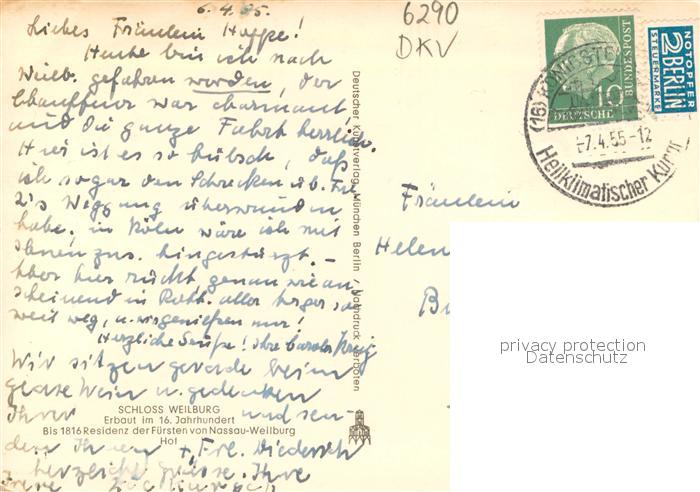 6.4.55.
Liebes Fräulein Hoppe!
Heute bin ich nach
Weilb. gefahren worden, der
Chauffeur war charmant
und die ganze Fahrt herrlich.
Hier ist es so hübsch, daß
ich sogar den Schrecken üb. Frl.
Weggang überwunden
habe, in Köln wäre ich mit
Ihnen zus. hingestürzt. –
Aber hier rückt genau wie an
scheinend in Roth. aller Ärger so
weit weg, u. wir genießen nur!
Herzliche Grüße! Ihre
Wir sitzen gerade beim
Glase Wein u. gedenken
Ihrer und sen-
den Ihnen + Frl. Diederich
herzliche Grüsse. Ihre
Irene
SCHLOSS WEILBURG
Erbaut im 16. Jahrhundert
Bis 1816 Residenz der Fürsten von Nassau-Weilburg
Hof
Deutscher Kunstverlag München Berlin / Nachdruck verboten
6290
DKV
10
DEUTSCHE
BUNDESPOST
NOTOPFER
2 BERLIN
STEUERMARKE
(16)
-7.4.55-12
Heilklimatischer Kuror
Fräulein
Helen
privacy protection
Datenschutz